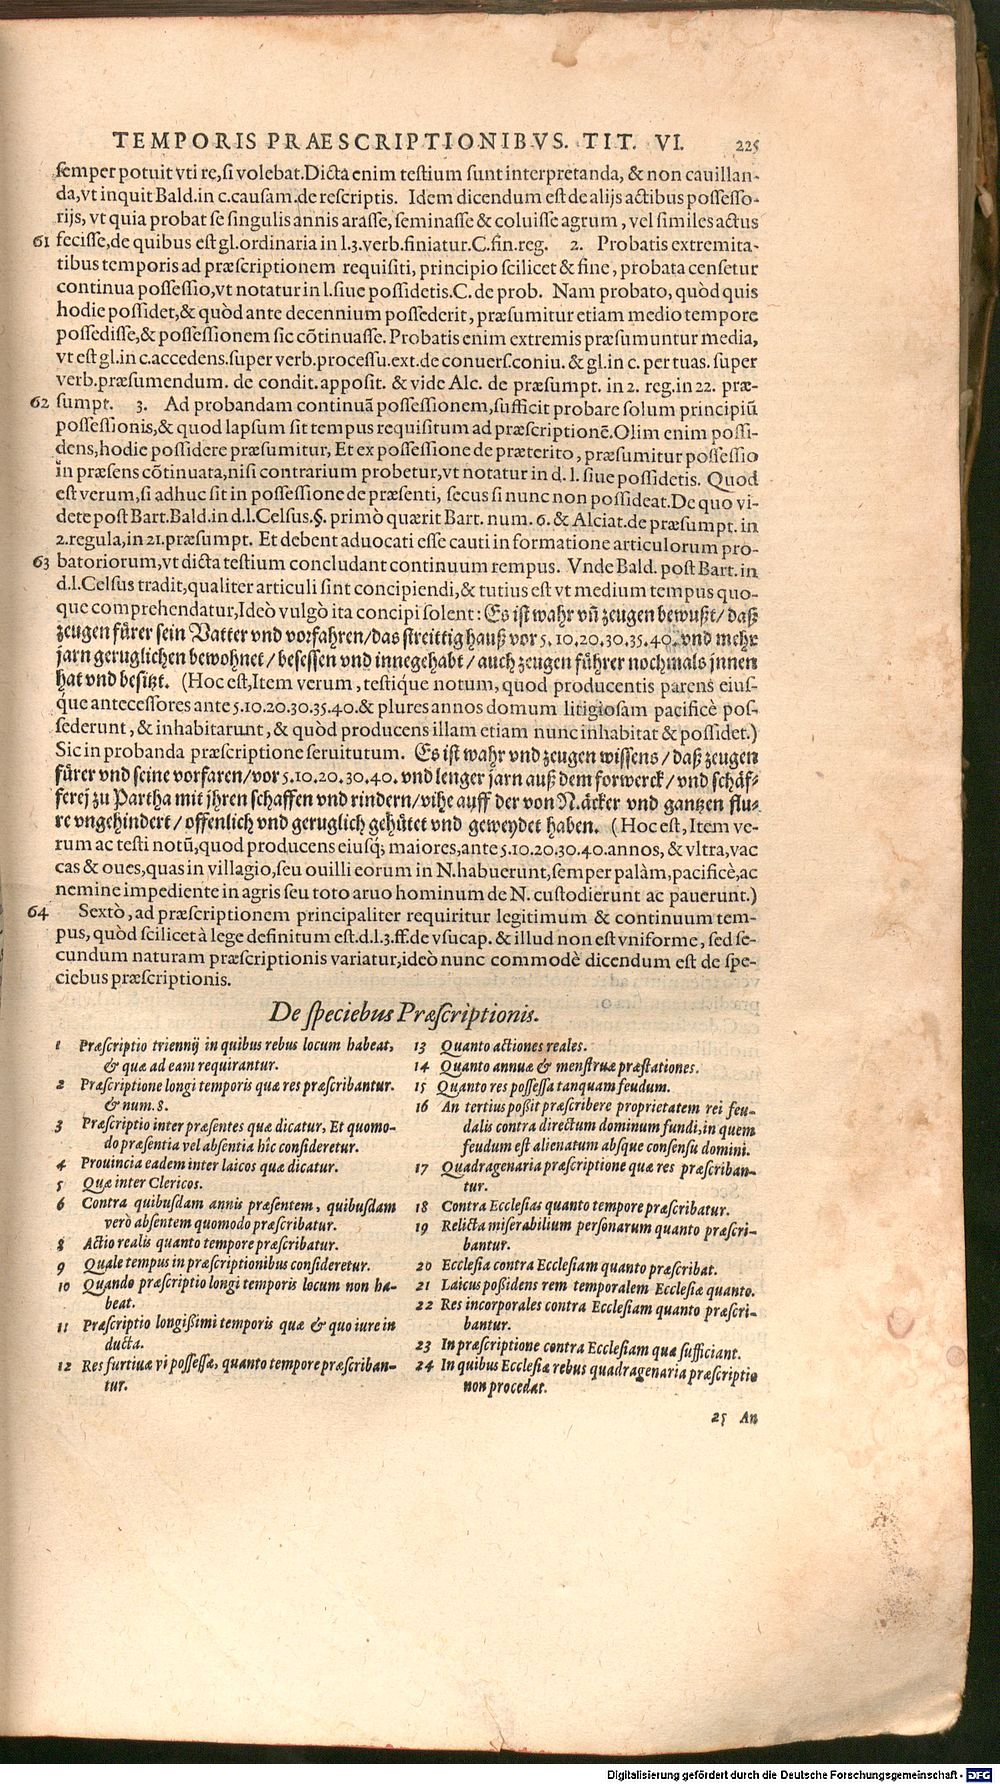 TEMPORIS PRAESCRIPTIONIBVS. TIT. VI. 225
semper potuit vti re, si volebat. Dicta enim testium sunt interpretanda, & non cauillan-
da, vt inquit Bald. in c. causam. de rescriptis. Idem dicendum est de alijs actibus possesso-
rijs, vt quia probat se singulis annis arasse, seminasse & coluisse agrum, vel similes actus
61 fecisse, de quibus est gl. ordinaria in l. 3. verb. finiatur. C. fin. reg. 2. Probatis extremita-
tibus temporis ad præscriptionem requisiti, principio scilicet & fine, probata censetur
continua possessio, vt notatur in l. siue possidetis. C. de prob. Nam probato, quòd quis
hodie possidet, & quòd ante decennium possederit, præsumitur etiam medio tempore
possedisse, & possessionem sic cõtinuasse. Probatis enim extremis præsumuntur media,
vt est gl. in c. accedens. super verb. processu. ext. de conuers. coniu. & gl. in c. per tuas. super
verb. præsumendum. de condit. apposit. & vide Alc. de præsumpt. in 2. reg. in 22. præ-
62 sumpt. 3. Ad probandam continuã possessionem, sufficit probare solum principiũ
possessionis, & quod lapsum sit tempus requisitum ad præscriptionẽ. Olim enim possi-
dens, hodie possidere præsumitur, Et ex possessione de præterito, præsumitur possessio
in præsens cõtinuata, nisi contrarium probetur, vt notatur in d. l. siue possidetis. Quod
est verum, si adhuc sit in possessione de præsenti, secus si nunc non possideat. De quo vi-
dete post Bart. Bald. in d. l. Celsus. §. primò quærit Bart. num. 6. & Alciat. de præsumpt. in
2. regula, in 21. præsumpt. Et debent aduocati esse cauti in formatione articulorum pro-
63 batoriorum, vt dicta testium concludant continuum tempus. Vnde Bald. post Bart. in
d. l. Celsus tradit, qualiter articuli sint concipiendi, & tutius est vt medium tempus quo-
que comprehendatur, Ideò vulgò ita concipi solent: Es ist wahr vñ zeugen bewußt/ daß
zeugen fürer sein Vatter vnd vorfahren/das streittig hauß vor 5. 10. 20. 30. 35. 40. vnd mehr
jarn geruglichen bewohnet / besessen vnd innegehabt / auch zeugen führer nochmals jnnen
hat vnd besitzt. (Hoc est, Item verum, testiq́ue notum, quod producentis parens eius-
q́ue antecessores ante 5. 10. 20. 30. 35. 40. & plures annos domum litigiosam pacificè pos-
sederunt, & inhabitarunt, & quòd producens illam etiam nunc inhabitat & possidet.)
Sic in probanda præscriptione seruitutum. Es ist wahr vnd zeugen wissens / daß zeugen
fürer vnd seine vorfaren/vor 5. 10. 20. 30. 40. vnd lenger jarn auß dem forwerck / vnd schäf-
ferej zu Partha mit jhren schaffen vnd rindern/vihe auff der von N. äcker vnd gantzen flu-
re vngehindert / offenlich vnd geruglich gehütet vnd geweydet haben. (Hoc est, Item ve-
rum ac testi notũ, quod producens eiusq́; maiores, ante 5. 10. 20. 30. 40. annos, & vltra, vac
cas & oues, quas in villagio, seu ouilli eorum in N. habuerunt, semper palàm, pacificè, ac
nemine impediente in agris seu toto aruo hominum de N. custodierunt ac pauerunt.)
64 Sextò, ad præscriptionem principaliter requiritur legitimum & continuum tem-
pus, quòd scilicet à lege definitum est. d. l. 3. ff. de vsucap. & illud non est vniforme, sed se-
cundum naturam præscriptionis variatur, ideò nunc commodè dicendum est de spe-
ciebus præscriptionis.
De speciebus Præscriptionis.
1 Præscriptio triennij in quibus rebus locum habeat,
& quæ ad eam requirantur.
2 Præscriptione longi temporis quæ res præscribantur.
& num. 8.
3 Præscriptio inter præsentes quæ dicatur, Et quomo-
do præsentia vel absentia hîc consideretur.
4 Prouincia eadem inter laicos quæ dicatur.
5 Quæ inter Clericos.
6 Contra quibusdam annis præsentem, quibusdam
verò absentem quomodo præscribatur.
8 Actio realis quanto tempore præscribatur.
9 Quale tempus in præscriptionibus consideretur.
10 Quando præscriptio longi temporis locum non ha-
beat.
11 Præscriptio longissimi temporis quæ & quo iure in
ducta.
12 Res furtiuæ vi possessæ, quanto tempore præscriban-
tur.
13 Quanto actiones reales.
14 Quanto annuæ & menstruæ præstationes.
15 Quanto res possessa tanquam feudum.
16 An tertius possit præscribere proprietatem rei feu-
dalis contra directum dominum fundi, in quem
feudum est alienatum absque consensu domini.
17 Quadragenaria præscriptione quæ res præscriban-
tur.
18 Contra Ecclesias quanto tempore præscribatur.
19 Relicta miserabilium personarum quanto præscri-
bantur.
20 Ecclesia contra Ecclesiam quanto præscribat.
21 Laicus possidens rem temporalem Ecclesiæ quanto.
22 Res incorporales contra Ecclesiam quanto præscri-
bantur.
23 In præscriptione contra Ecclesiam quæ sufficiant.
24 In quibus Ecclesiæ rebus quadragenaria præscriptio
non procedat.
25 An
Digitalisierung gefördert durch die Deutsche Forschungsgemeinschaft - DFG